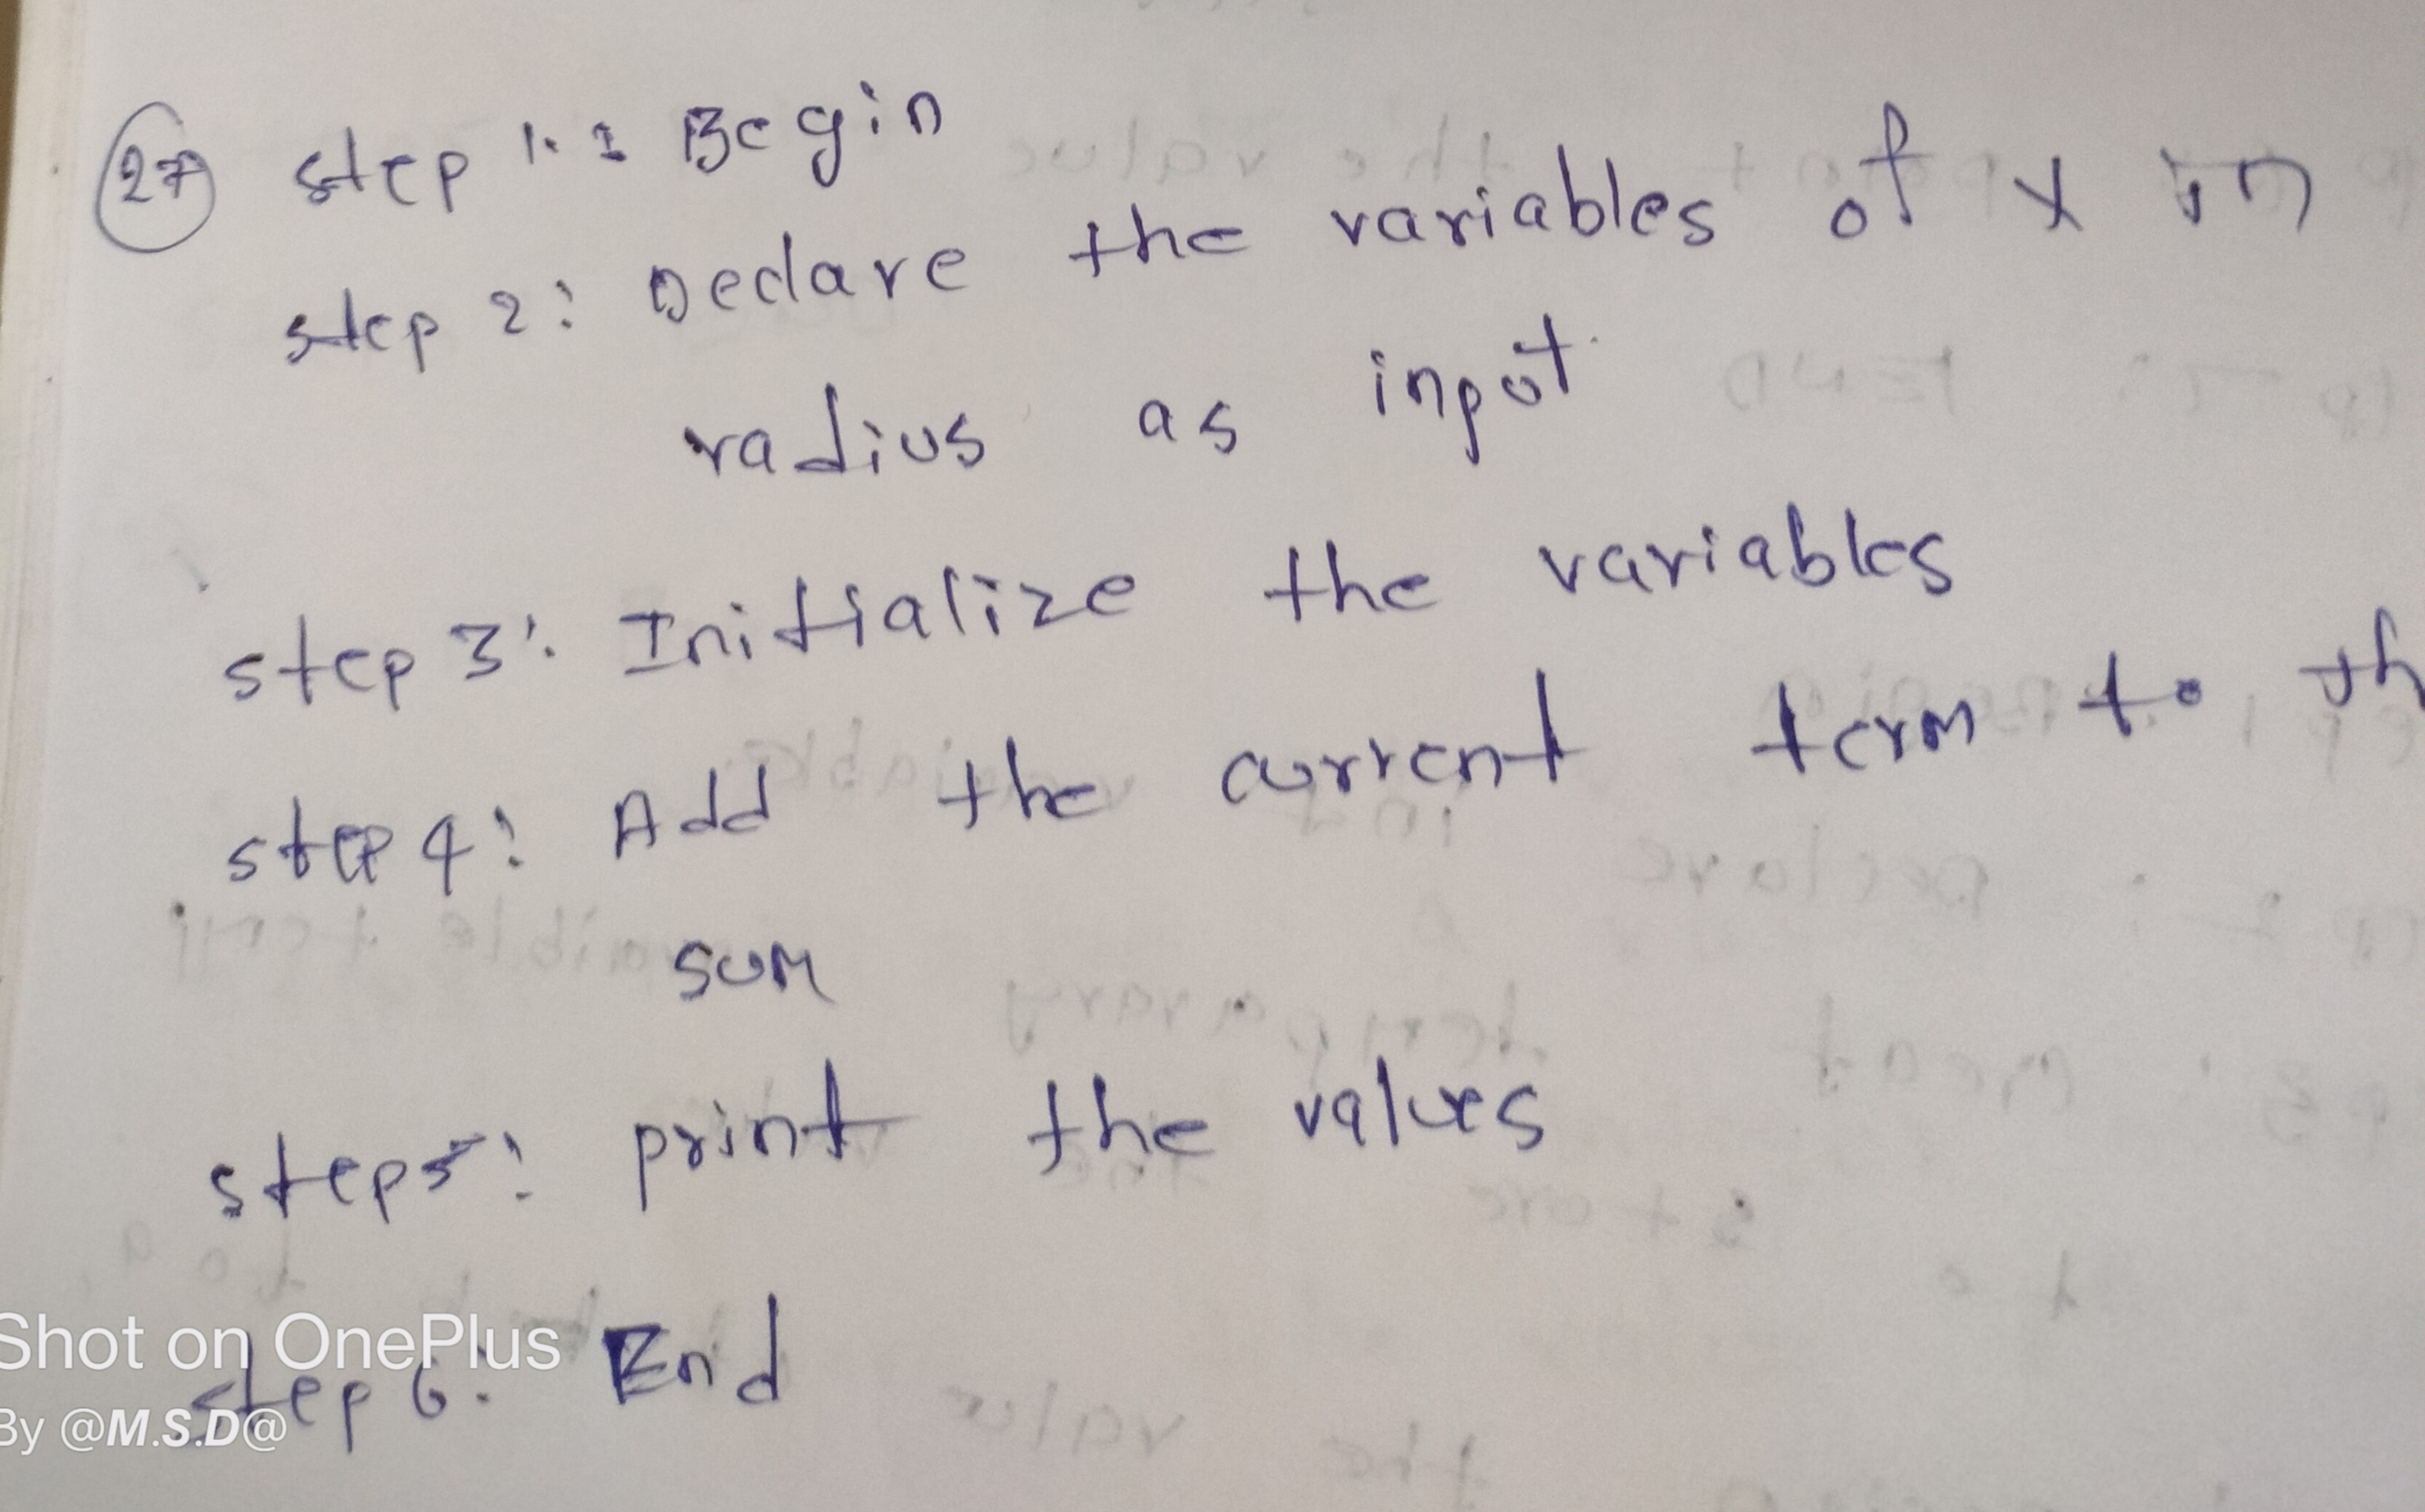 27 step 1: Begin
step 2: Declare the variables of x in
radius as input
step 3: Initialize the variables
step 4: Add the current term to th
sum
step 5: print the values
Shot on OnePlus
step 6: End
By @M.S.D@